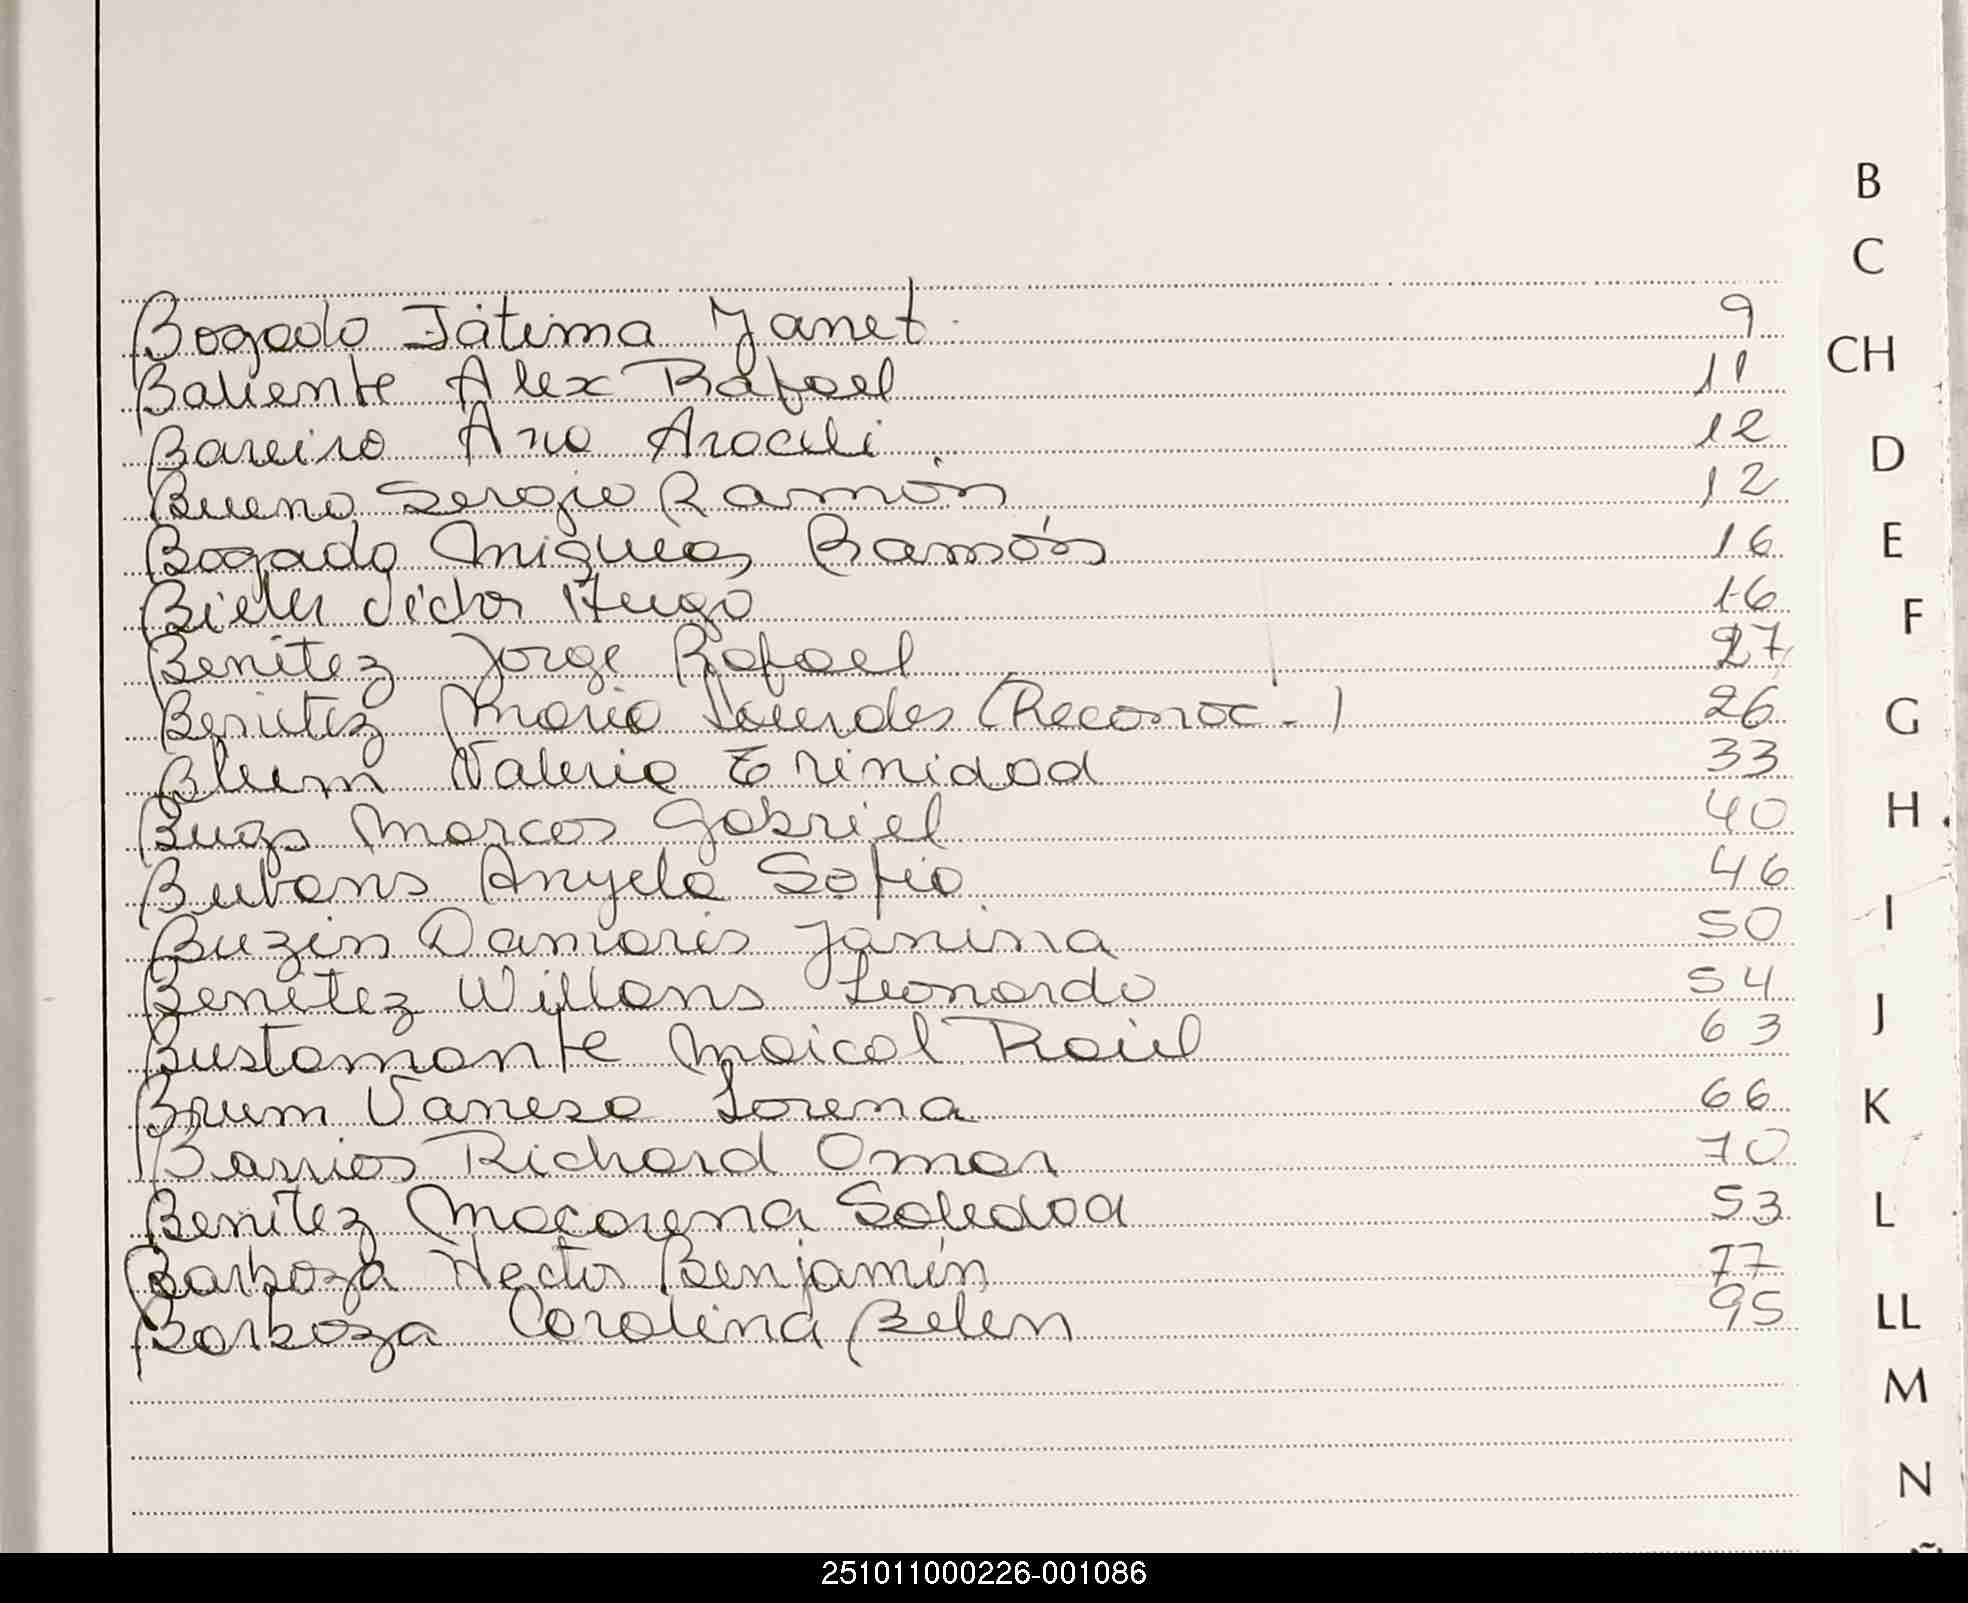 B
C
Bogado Fátima Yanet 9
CH
Baliente Alex Rafael 11
Bareiro Ana Araceli 12
D
Bueno Sergio Ramón 12
Bogado Ramón 16
E
Víctor Hugo 16
F
Benitez Jorge Rafael 27
Benitez Maria Lourdes (Reconoc.) 26
G
Blum Valeria Trinidad 33
Bugs Marcos Gabriel 40
H
Angela Sofia 46
I
Buzin Damaris Janina 50
Benitez Willans Leonardo 54
J
Bustamante Maicol Raúl 63
Brum Vanesa Lorena 66
K
Barrios Richard Omar 70
Benitez Macarena Soledad 53
L
Barboza Hector Benjamín 77
Barboza Carolina Belen 95
LL
M
N
251011000226-001086